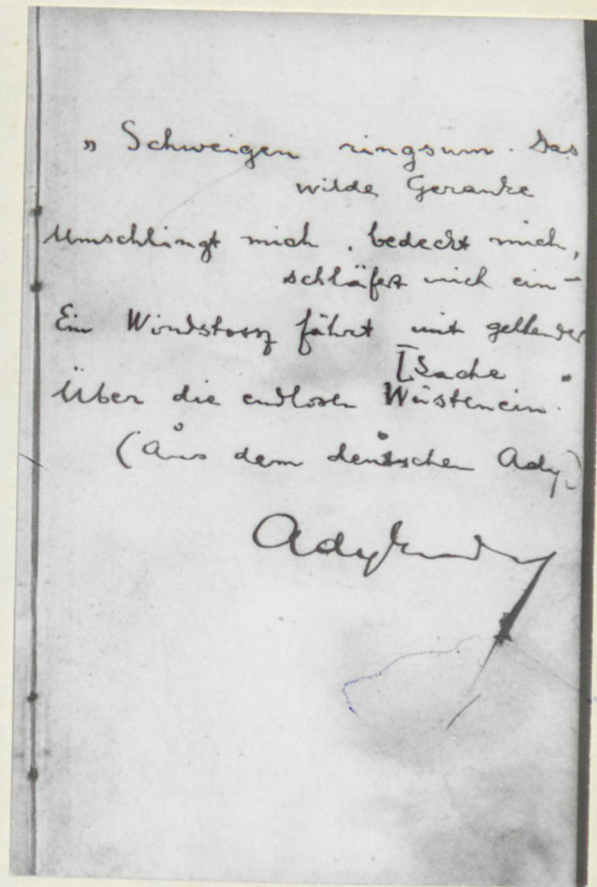 „ Schweigen ringsum. Das
wilde Geranke
Umschlingt mich, bedeckt mich,
schläfert mich ein –
Ein Windstosz fährt mit gellender
[Lache
Über die endlosen Wüsteneien."
(Aus dem deutschen Ady.)
Ady Endre